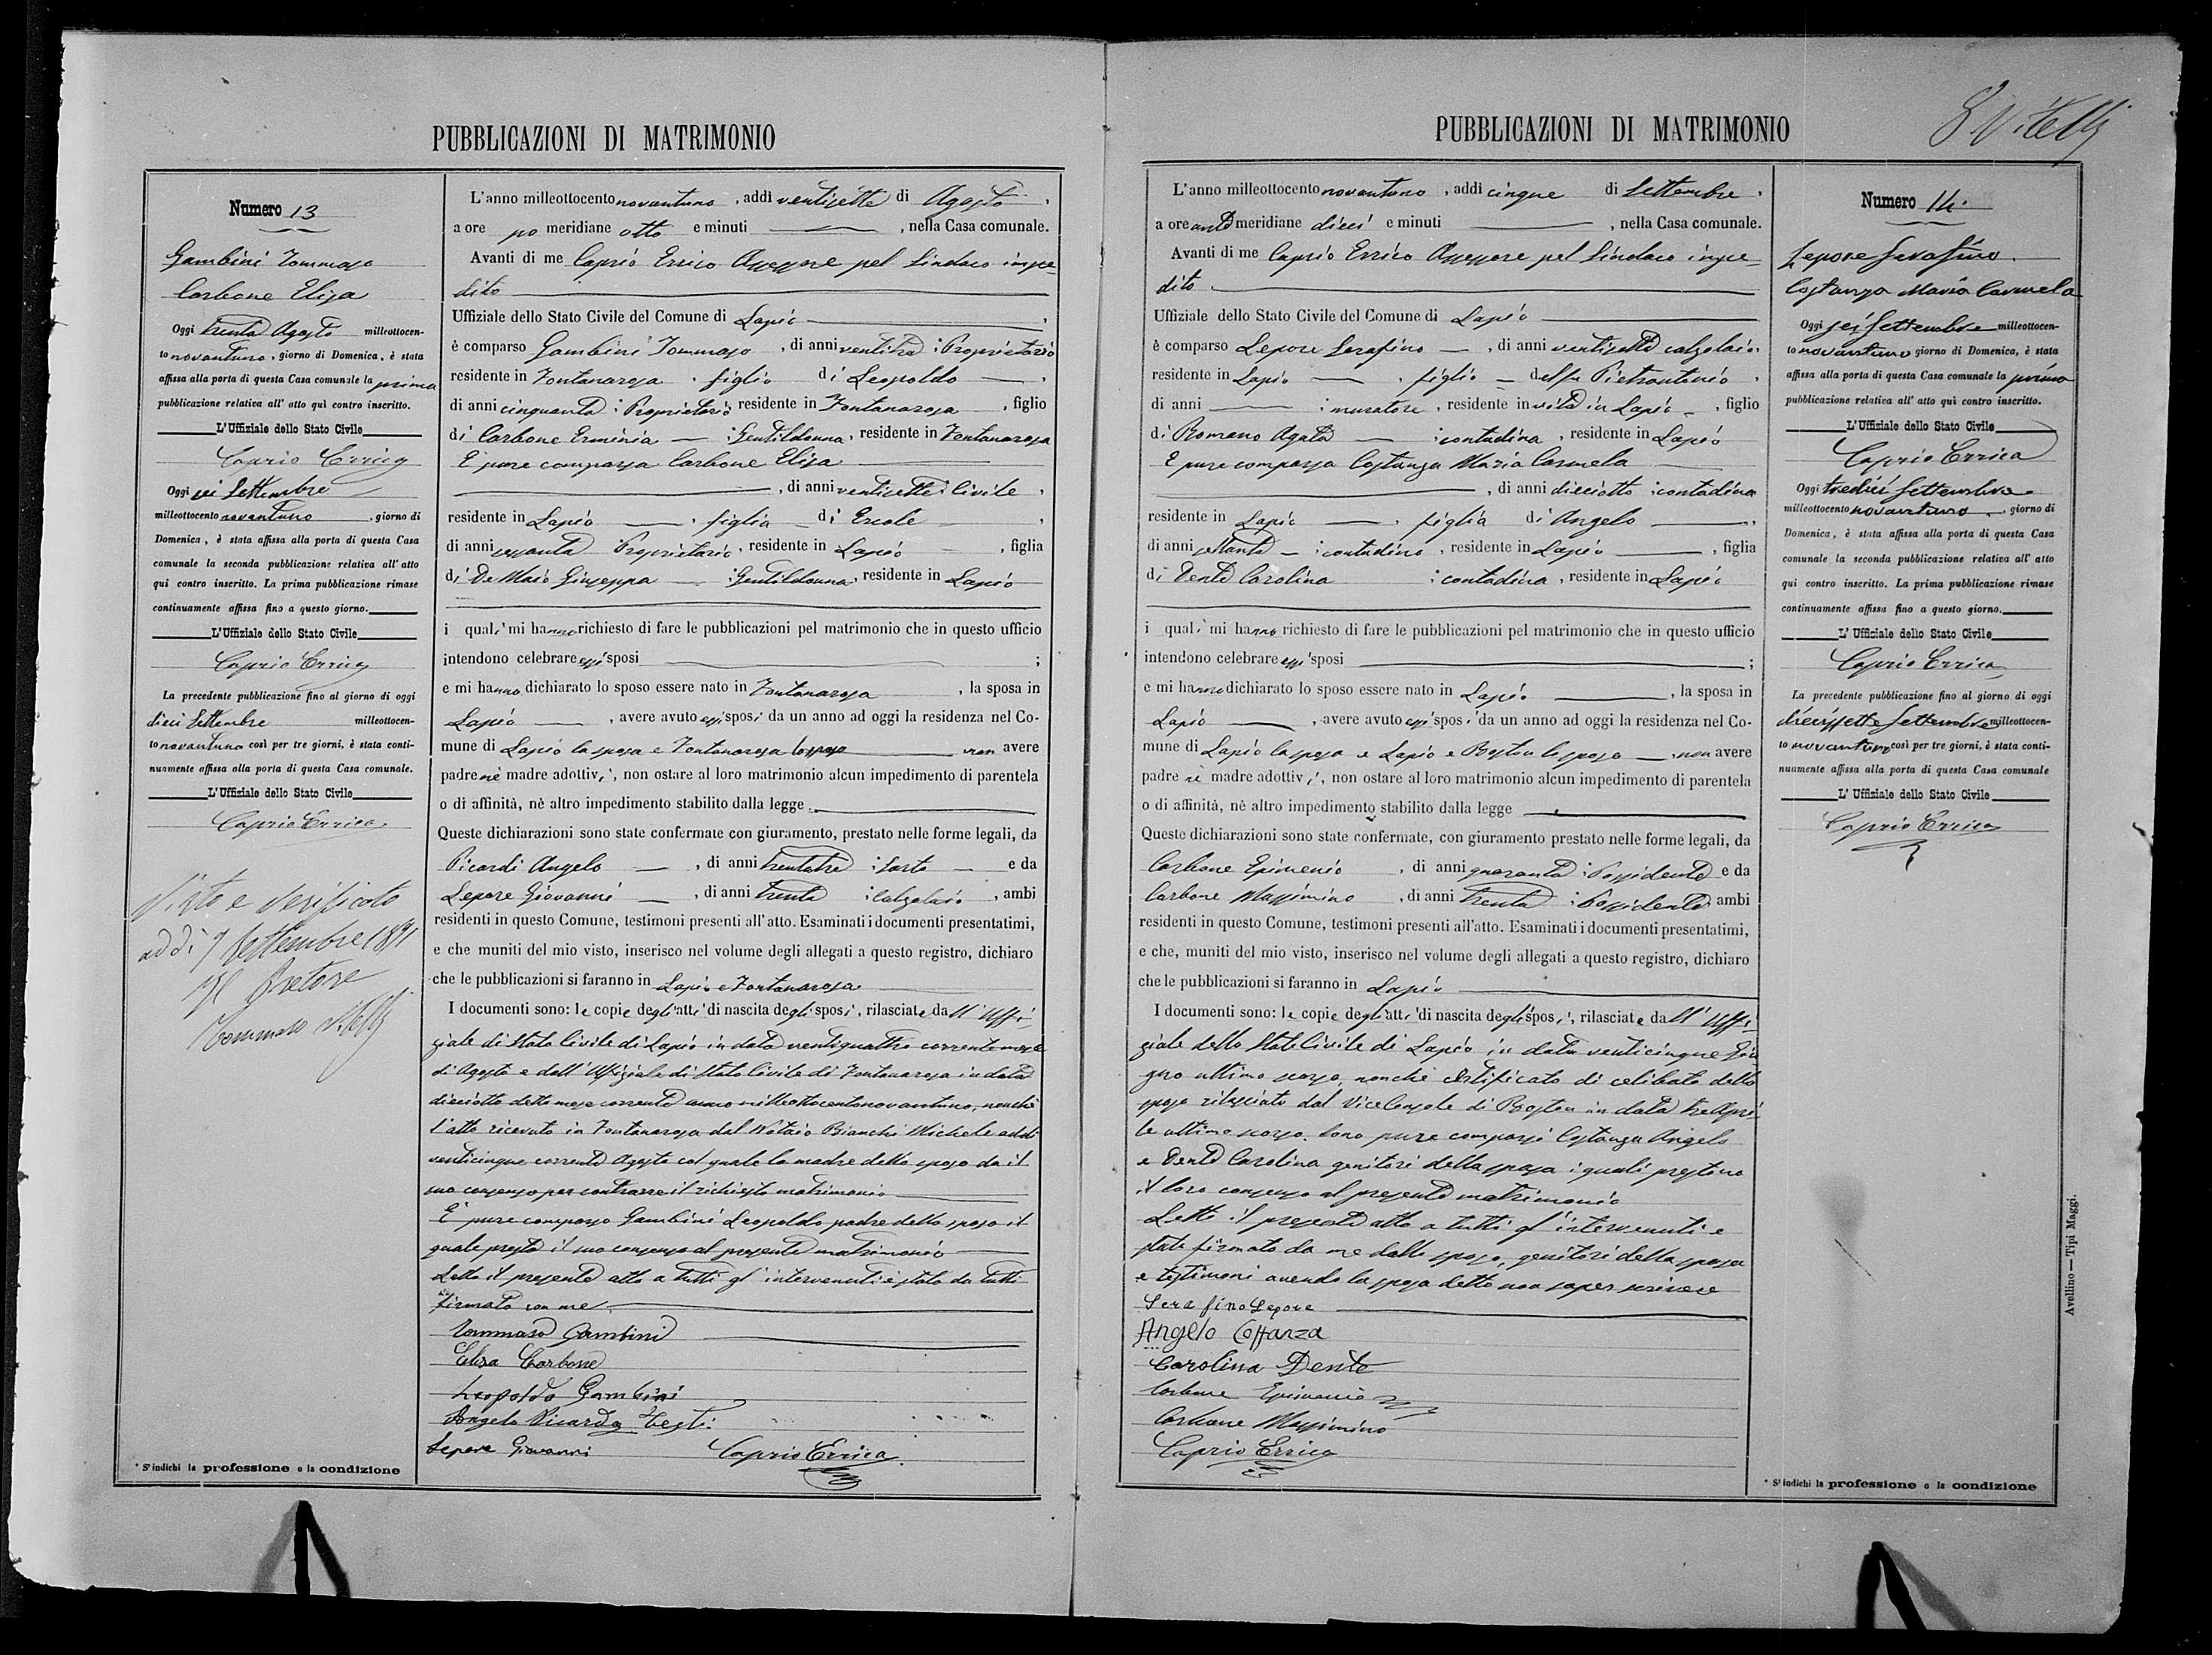 PUBBLICAZIONI DI MATRIMONIO
Numero 13
Gambini Tommaso
Carbone Elisa
Oggi trenta Agosto milleottocen-
to novantuno, giorno di Domenica, è stata
affissa alla porta di questa Casa comunale la prima
pubblicazione relativa all' atto quì contro inscritto.
L'Uffiziale dello Stato Civile
Caprio Errico
Oggi sei Settembre
milleottocento novantuno, giorno di
Domenica, è stata affissa alla porta di questa Casa
comunale la seconda pubblicazione relativa all' atto
qui contro inscritto. La prima pubblicazione rimase
continuamente affissa fino a questo giorno.
L'Uffiziale dello Stato Civile
Caprio Errico
La precedente pubblicazione fino al giorno di oggi
dieci Settembre milleottocen-
to novantuno così per tre giorni, è stata conti-
nuamente affissa alla porta di questa Casa comunale.
L'Uffiziale dello Stato Civile
Caprio Errico
Visto e verificato
addì 7 Settembre 1891
Il Pretore
Tommaso Vitelli
* S'indichi la professione o la condizione
L'anno milleottocento novantuno, addì ventisette di Agosto,
a ore po meridiane otto e minuti , nella Casa comunale.
Avanti di me Caprio Errico Assessore pel Sindaco impe-
dito
Uffiziale dello Stato Civile del Comune di Lapio
è comparso Gambini Tommaso, di anni ventitre; Proprietario
residente in Fontanarosa, figlio di Leopoldo
di anni cinquanta; Proprietario, residente in Fontanarosa, figlio
di Carbone Erminia ; Gentildonna, residente in Fontanarosa
È pure comparsa Carbone Elisa
, di anni ventisette; Civile,
residente in Lapio, figlia di Ercole
di anni sessanta Proprietario, residente in Lapio, figlia
di De Maio Giuseppa ; Gentildonna, residente in Lapio
i quali mi hanno richiesto di fare le pubblicazioni pel matrimonio che in questo ufficio
intendono celebrare essi sposi ;
e mi hanno dichiarato lo sposo essere nato in Fontanarosa, la sposa in
Lapio, avere avuto essi sposi da un anno ad oggi la residenza nel Co-
mune di Lapio la sposa e Fontanarosa lo sposo non avere
padre nè madre adottivi, non ostare al loro matrimonio alcun impedimento di parentela
o di affinità, nè altro impedimento stabilito dalla legge.
Queste dichiarazioni sono state confermate con giuramento, prestato nelle forme legali, da
Picardi Angelo, di anni trentatre; sarto e da
Lepore Giovanni, di anni trenta; Calzolaio, ambi
residenti in questo Comune, testimoni presenti all'atto. Esaminati i documenti presentatimi,
e che muniti del mio visto, inserisco nel volume degli allegati a questo registro, dichiaro
che le pubblicazioni si faranno in Lapio e Fontanarosa
I documenti sono: le copie degli atti di nascita degli sposi, rilasciate dall'Uffi-
ziale di Stato Civile di Lapio in data ventiquattro corrente mese
di Agosto e dall'Uffiziale di Stato Civile di Fontanarosa in data
diciotto detto mese corrente anno milleottocentonovantuno, nonchè
l'atto ricevuto in Fontanarosa dal Notaio Bianchi Michele addì
venticinque corrente Agosto col quale la madre dello sposo da il
suo consenso per contrarre il richiesto matrimonio
È pure comparso Gambini Leopoldo padre dello sposo il
quale presta il suo consenso al presente matrimonio
Letto il presente atto a tutti gl'intervenuti è stato da tutti
firmato con me.
Tommaso Gambini
Elisa Carbone
Leopoldo Gambini
Angelo Picardi Teste
Lepore Giovanni Caprio Errico
PUBBLICAZIONI DI MATRIMONIO
8 Vitelli
L'anno milleottocento novantuno, addì cinque di Settembre,
a ore anti meridiane dieci e minuti , nella Casa comunale.
Avanti di me Caprio Errico Assessore pel Sindaco impe-
dito
Uffiziale dello Stato Civile del Comune di Lapio
è comparso Lepore Serafino, di anni ventisette calzolaio,
residente in Lapio, figlio del fu Pietrantonio,
di anni ; muratore, residente in vita in Lapio, figlio
di Romano Agata ; contadina, residente in Lapio
È pure comparsa Costanza Maria Carmela
, di anni dieciotto; contadina
residente in Lapio, figlia di Angelo,
di anni settanta; contadino, residente in Lapio, figlia
di Dente Carolina ; contadina, residente in Lapio
i quali mi hanno richiesto di fare le pubblicazioni pel matrimonio che in questo ufficio
intendono celebrare essi sposi ;
e mi hanno dichiarato lo sposo essere nato in Lapio, la sposa in
Lapio, avere avuto essi sposi da un anno ad oggi la residenza nel Co-
mune di Lapio la sposa e Lapio e Boston lo sposo, non avere
padre nè madre adottivi, non ostare al loro matrimonio alcun impedimento di parentela
o di affinità, nè altro impedimento stabilito dalla legge
Queste dichiarazioni sono state confermate, con giuramento prestato nelle forme legali, da
Carbone Epimenio, di anni quaranta; Possidente e da
Carbone Massimino, di anni trenta; Possidente, ambi
residenti in questo Comune, testimoni presenti all'atto. Esaminati i documenti presentatimi,
e che, muniti del mio visto, inserisco nel volume degli allegati a questo registro, dichiaro
che le pubblicazioni si faranno in Lapio
I documenti sono: le copie degli atti di nascita degli sposi, rilasciate dall'Uffi-
ziale dello Stato Civile di Lapio in data venticinque Giu-
gno ultimo scorso, nonchè certificato di celibato dello
sposo rilasciato dal Viceconsole di Boston in data tre Apri-
le ultimo scorso. Sono pure comparsi Costanza Angelo
e Dente Carolina genitori della sposa i quali prestano
il loro consenso al presente matrimonio
Letto il presente atto a tutti gl'intervenuti è
stato firmato da me dallo sposo, genitori della sposa
e testimoni avendo la sposa detto non saper scrivere
Serafino Lepore
Angelo Costanza
Carolina Dente
Carbone Epimenio
Carbone Massimino
Caprio Errico
Numero 14.
Lepore Serafino.
Costanza Maria Carmela
Oggi sei Settembre milleottocen-
to novantuno giorno di Domenica, è stata
affissa alla porta di questa Casa comunale la prima
pubblicazione relativa all' atto qui contro inscritto.
L'Uffiziale dello Stato Civile
Caprio Errico
Oggi tredici Settembre
milleottocento novantuno, giorno di
Domenica, è stata affissa alla porta di questa Casa
comunale la seconda pubblicazione relativa all' atto
qui contro inscritto. La prima pubblicazione rimase
continuamente affissa fino a questo giorno.
L' Uffiziale dello Stato Civile
Caprio Errico
La precedente pubblicazione fino al giorno di oggi
diecissette Settembre milleottocen-
to novantuno così per tre giorni, è stata conti-
nuamente affissa alla porta di questa Casa comunale
L' Uffiziale dello Stato Civile
Caprio Errico
* S'indichi la professione o la condizione
Avellino — Tipi Maggi.